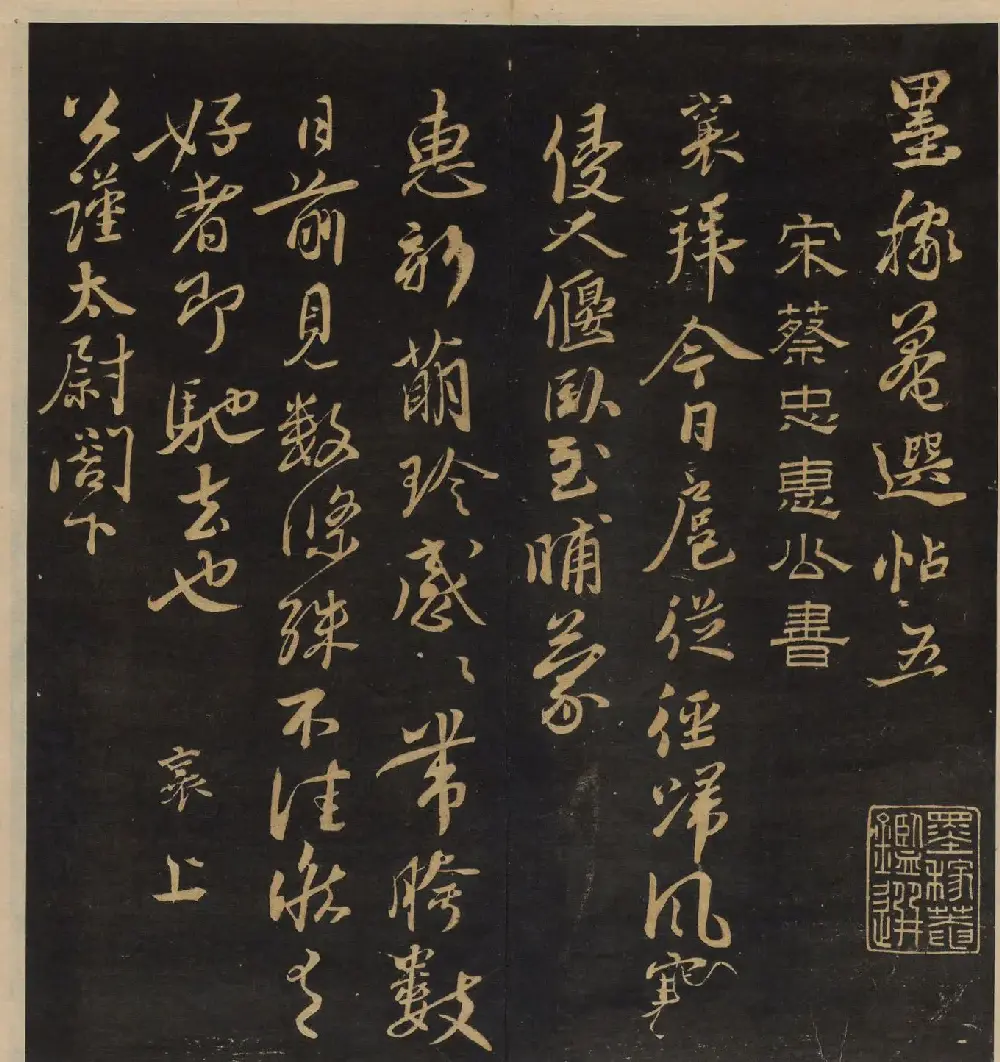 墨稼菴選帖五
宋蔡忠惠公書
襄拜今日扈從徑歸風寒
侵人偃臥至晡蒙
惠新萌珍感〻帶胯數
日前見數條殊不佳候有
好者即馳去也 襄上
公謹太尉閤下
墨稼菴
鑑選